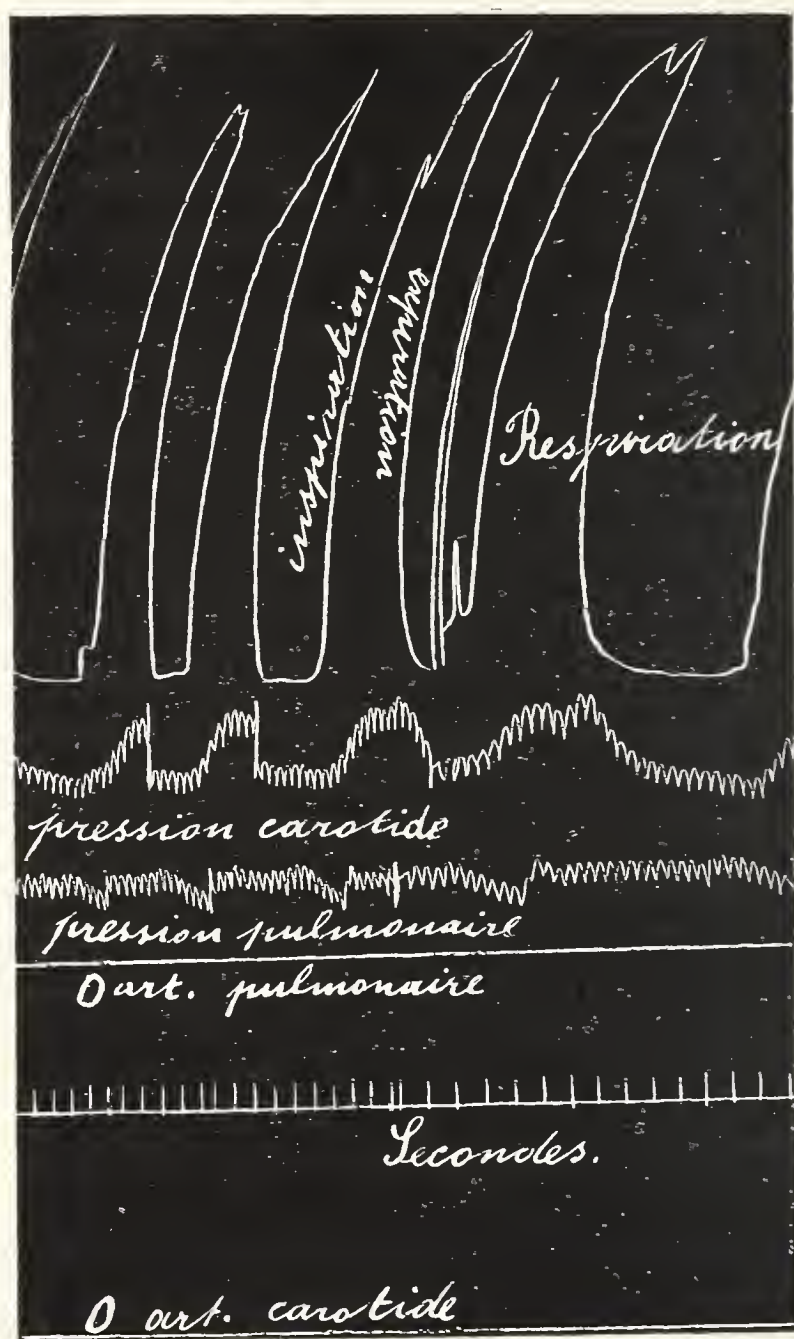 inspiration
expiration
Respiration
pression carotide
pression pulmonaire
0 art. pulmonaire
Secondes.
0 art. carotide